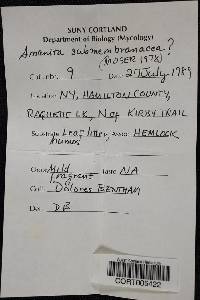 SUNY CORTLAND
Department of Biology (Mycology)
Amanita submembranacea?
(MOSER 1978)
Cat. No. 9 Date 27 July 1989
Location NY, HAMILTON COUNTY,
RAQUETTE LK, N of KIRBY TRAIL
Substrate Leaf litter, Assoc. HEMLOCK
humus
Odor Mild Taste NA
fragrant
Coll. Dolores BENTHAM
Det. DB
CORT006422